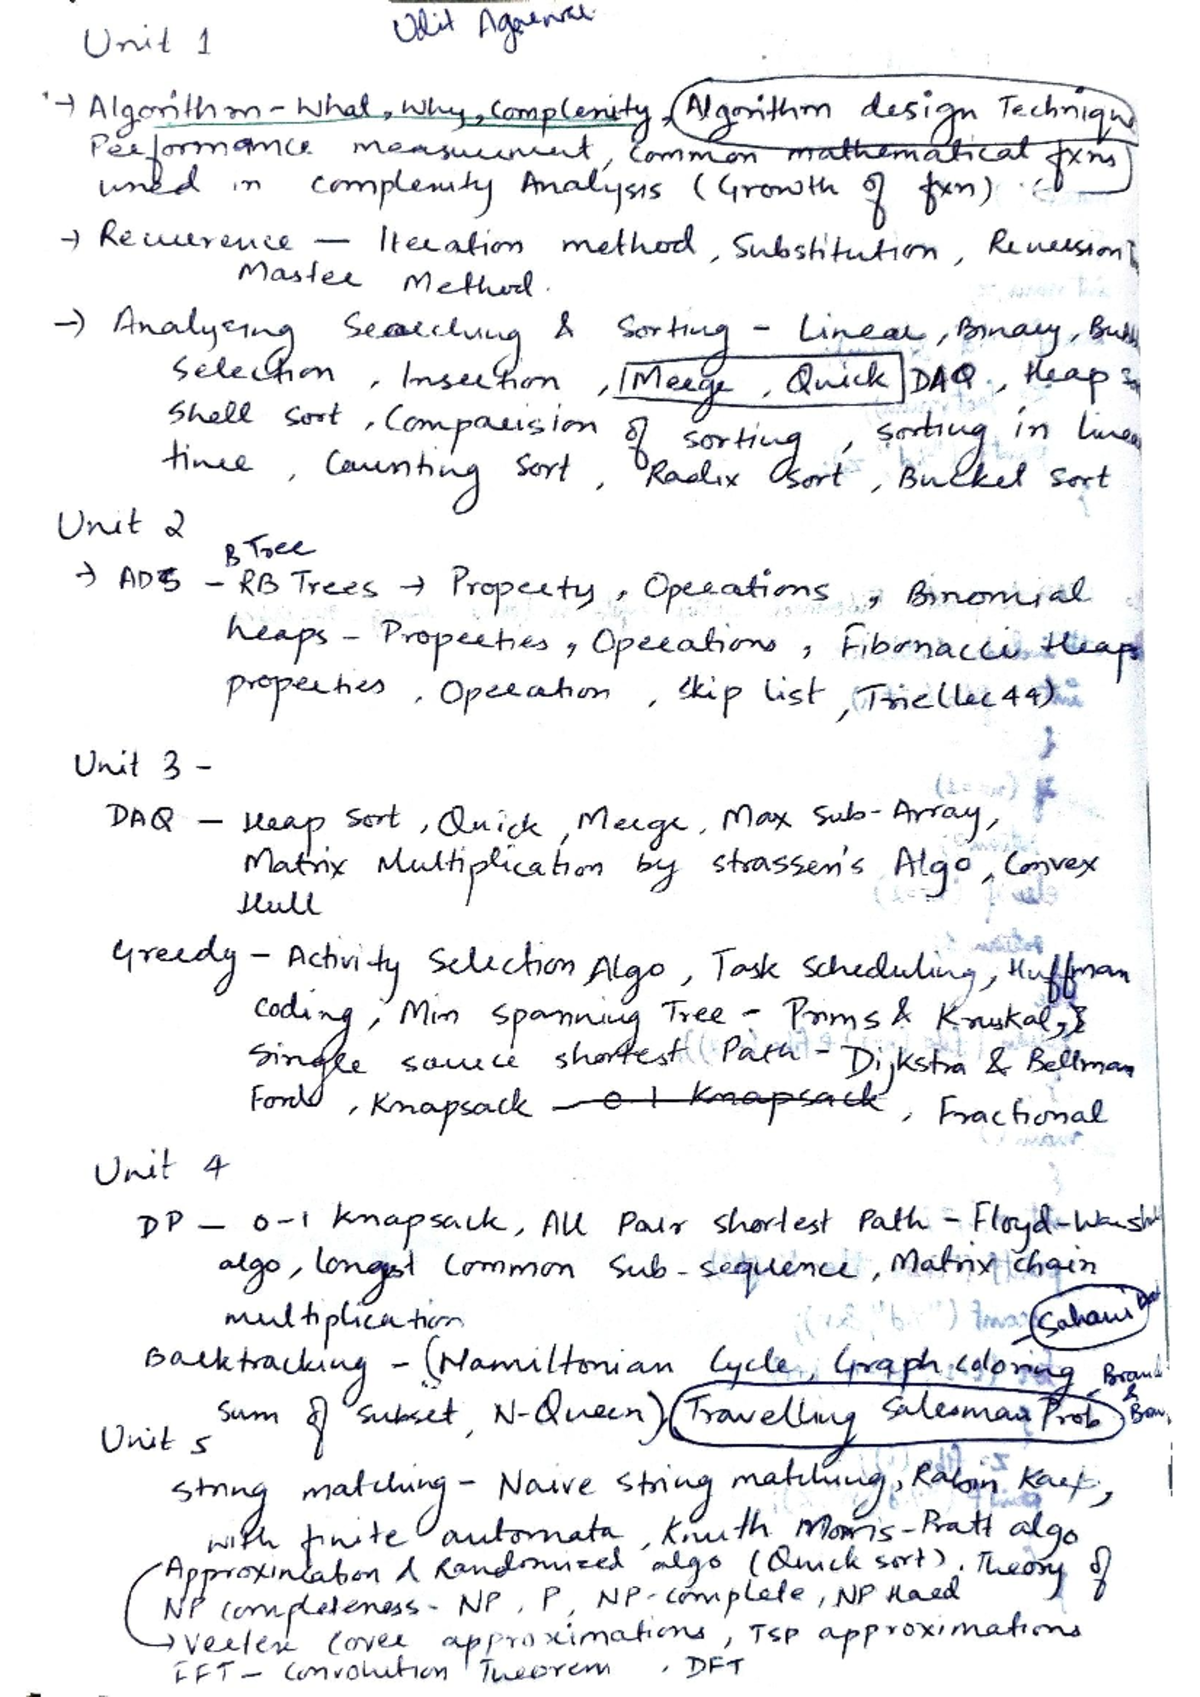 Udit Agarwal
Unit 1
→ Algorithm - What, Why, Complexity, Algorithm design Technique
Performance measurement, Common mathematical fxns
used in complexity Analysis (Growth of fxn)
→ Recurrence — Iteration method, Substitution, Recursion
Master Method.
→ Analysing Searching & Sorting - Linear, Binary, Bubb
Selection, Insertion, Merge, Quick DAQ, Heap
Shell Sort, Comparision of sorting, sorting in linear
time, Counting Sort, Radix Sort, Bucket Sort
Unit 2
B Tree
→ ADS - RB Trees → Property, Operations, Binomial
heaps - Properties, Operations, Fibonacci Heaps
properties, Operation, Skip list, Trie (lec 44)
Unit 3 -
DAQ — Heap Sort, Quick, Merge, Max Sub-Array,
Matrix Multiplication by strassen's Algo, Convex
Hull
Greedy - Activity Selection Algo, Task Scheduling, Huffman
Coding, Min Spanning Tree - Prims & Kruskal,
Single source shortest Path - Dijkstra & Bellman
Ford, Knapsack — 0-1 Knapsack, Fractional
Unit 4
DP — 0-1 Knapsack, All Pair shortest Path - Floyd-Warsh
algo, Longest Common Sub-sequence, Matrix chain
multiplication
Sahani
Backtracking - (Hamiltonian Cycle, Graph coloring, Branch
&
Sum of subset, N-Queen), Travelling Salesman Prob Bou
Unit 5
String matching - Naive string matching, Rabin Karp,
with finite automata, Knuth Morris-Pratt algo
Approximation & Randomized algo (Quick sort). Theory of
NP completeness - NP, P, NP-complete, NP Hard
→ Vertex Cover approximations, TSP approximations
FFT - Convolution Theorem, DFT